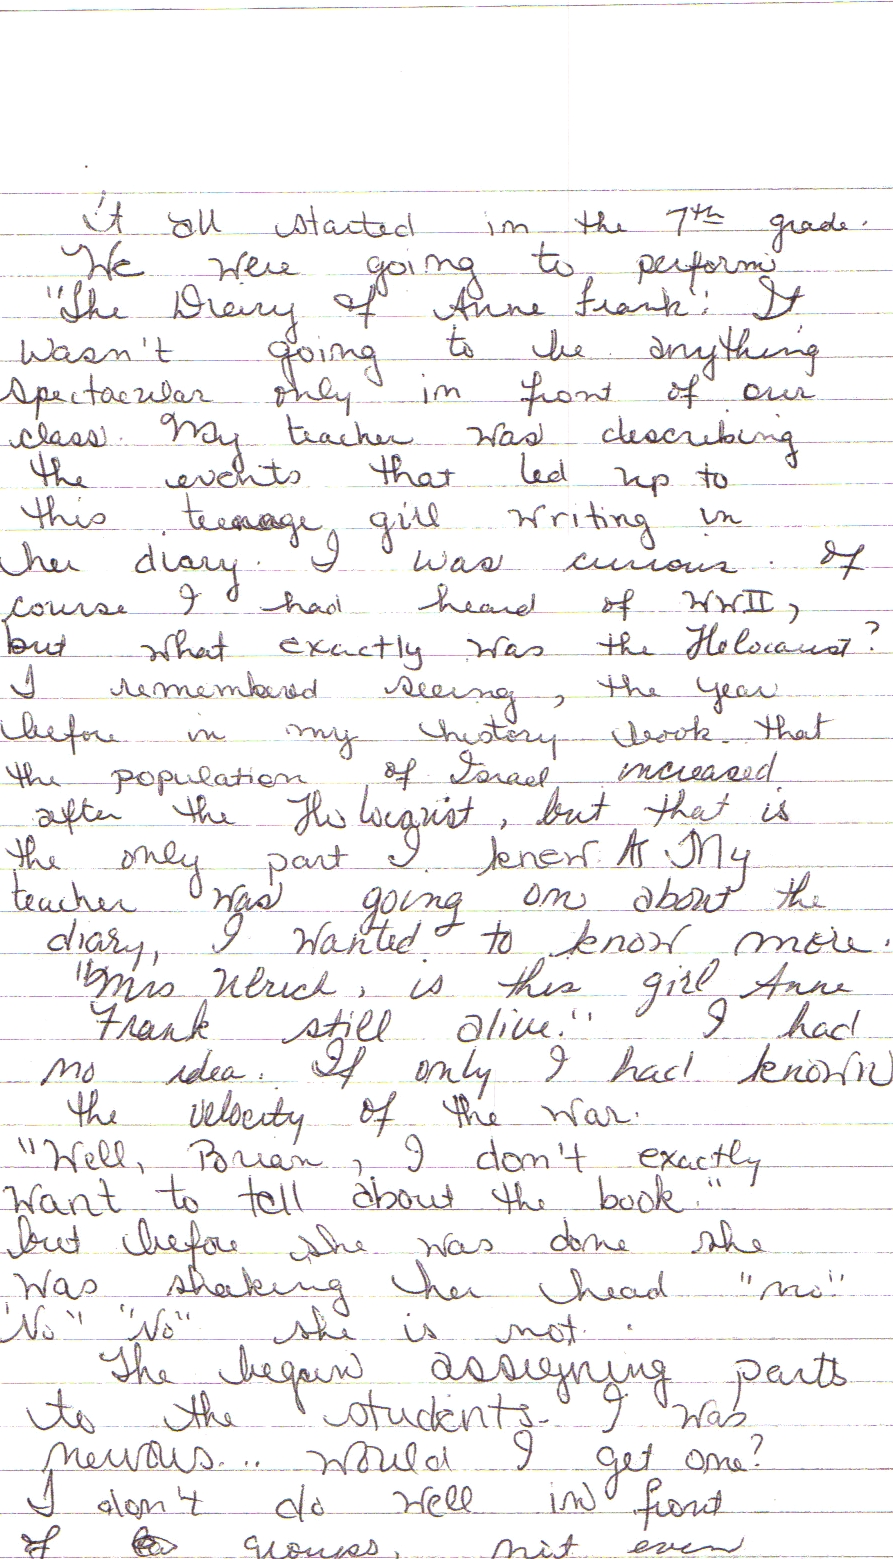 it all started in the 7th grade.
We were going to perform
"The Diary of Anne Frank". It
wasn't going to be anything
spectacular only in front of our
class. My teacher was describing
the events that led up to
this teenage girl writing in
her diary. I was curious. Of
course I had heard of WWII,
but what exactly was the Holocaust?
I remembered seeing, the year
before in my history book that
the population of Israel increased
after the Holocaust, but that is
the only part I knew. As My
teacher was going on about the
diary, I wanted to know more.
"Mrs Ulrich, is this girl Anne
Frank still alive." I had
no idea. If only I had known
the velocity of the war.
"Well, Brian, I don't exactly
want to tell about the book."
but before she was done she
was shaking her head "no"
"No" "No" she is not.
She began assigning parts
to the students. I was
nervous... would I get one?
I don't do well in front
of groups, not even